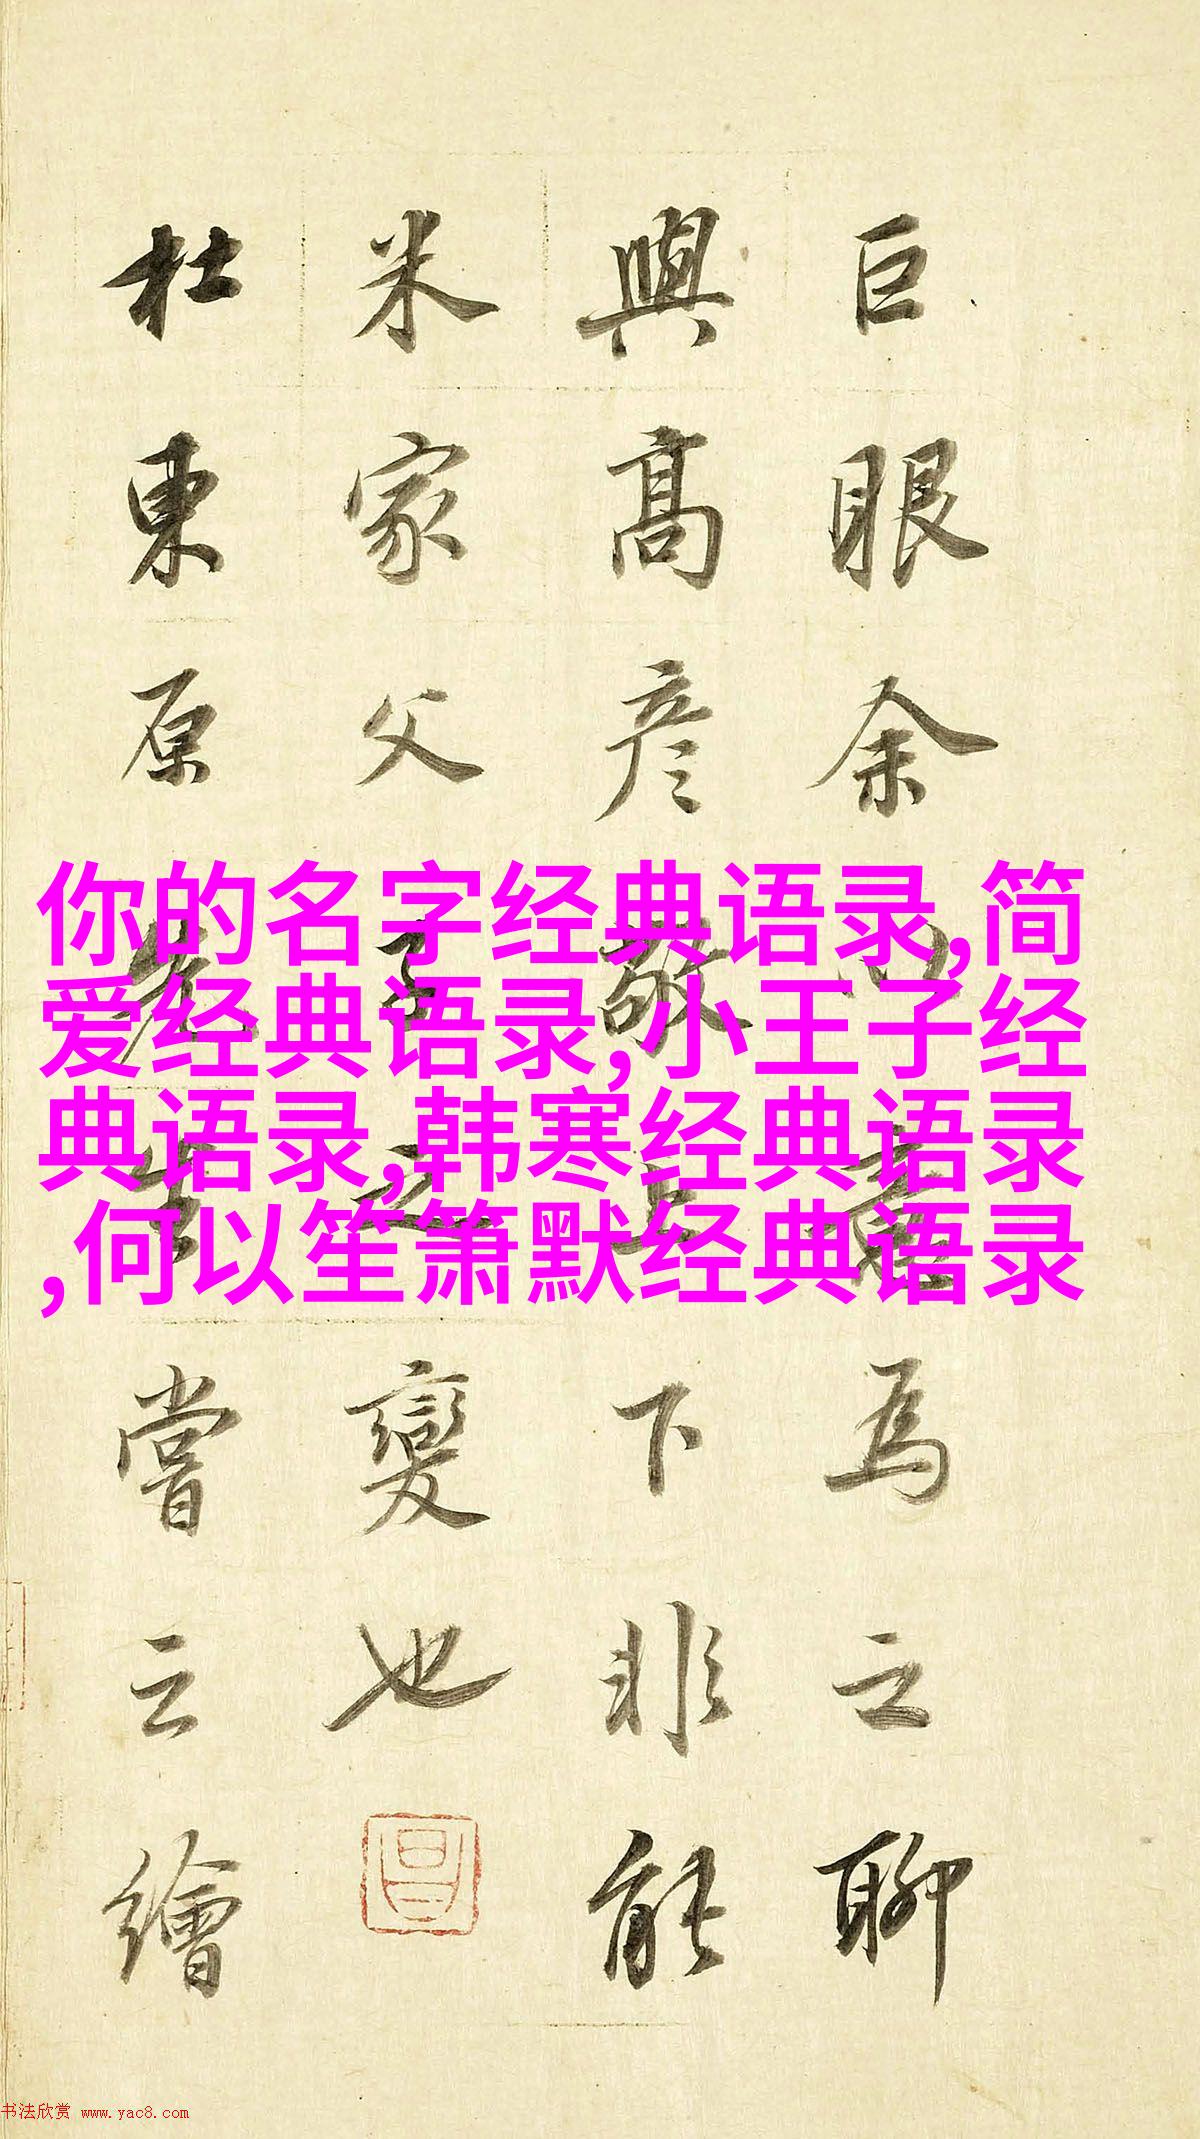 巨眼余心賞為之聊
與高彦敬上下非能
米家父子之變也
杜東原先生嘗云繪
你的名字经典语录,简
爱经典语录,小王子经
典语录,韩寒经典语录
,何以笙箫默经典语录
书法欣赏 www.yac8.com